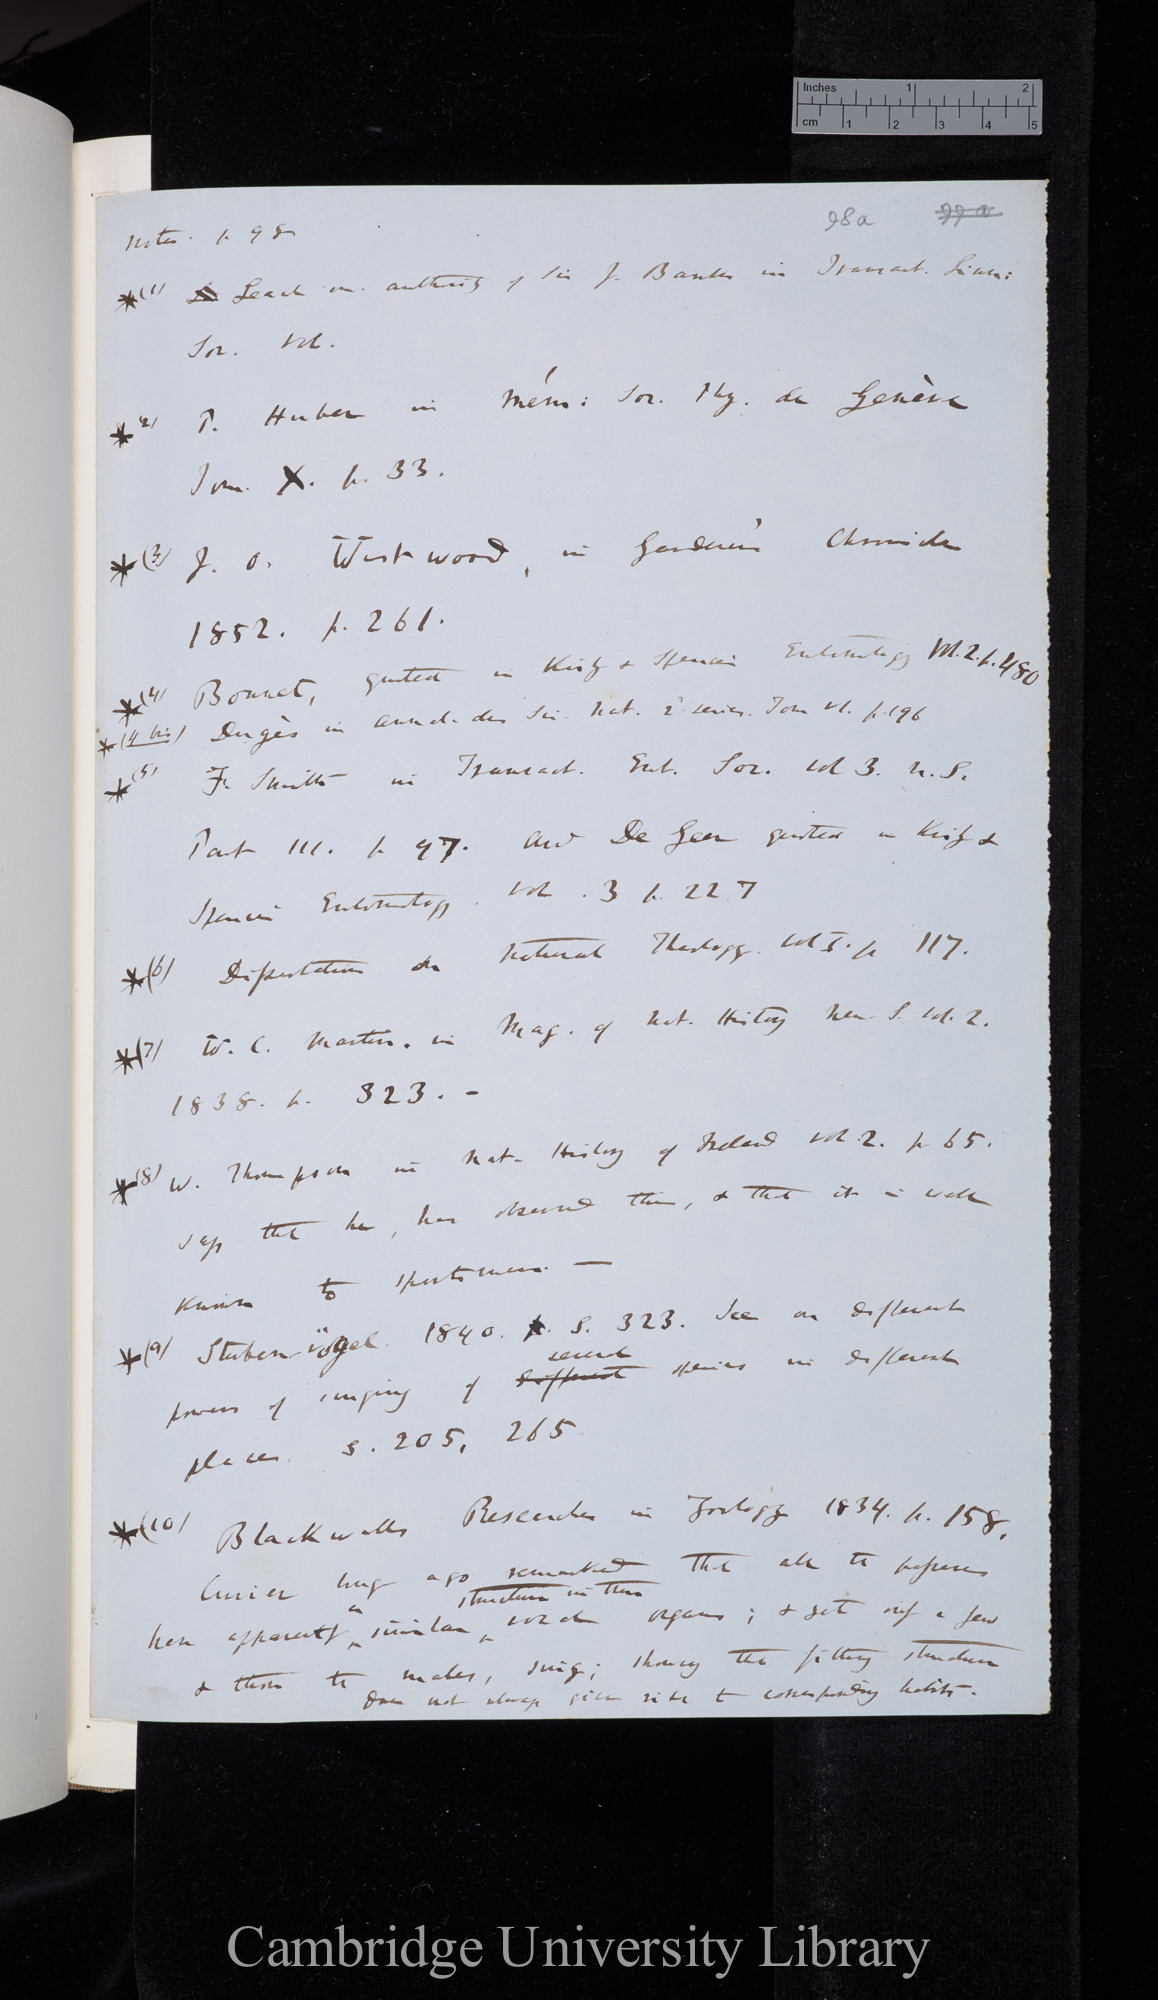 Inches 1 2
cm 1 2 3 4 5
98a 99a
Notes. p 98
*(1) Dr Leach on authority of Sir J. Banks in Transact. Linn:
Soc. vol.
*2) P. Huber in Mém: Soc. Phy. de Genève
Tom. X. p. 33.
*(3) J. O. Westwood, in Gardener's Chronicle
1852. p. 261.
*(4) Bonnet, quoted in Kirby & Spence's Entomology Vol. 2. p. 480
*(4 bis) Dugès in annal. des Sci. Nat. 2d series. Tom VI. p. 196
*(5) F. Smith in Transact. Ent. Soc. vol 3. N. S.
Part III. p 97. and De Geer quoted in Kirby &
Spence's Entomology. vol. 3 p. 227
*(6) Dissertation on Natural Theology. vol I. p 117.
*(7) W. C. Martin. in Mag. of Nat. History New. S. vol. 2.
1838. p. 323. –
*(8) W. Thompson in Nat. History of Ireland vol. 2. p 65.
says that he, has observed this, & that it is well
known to sportsmen. —
*(9) Stubenvögel. 1840. p. S. 323. See on different
powers of singing of different several species in different
places S. 205, 265
*(10) Blackwalls Researches in Zoology 1834. p. 158.
Cuvier long ago remarked that all the passeres
have apparently a similar structure in their vocal organs; & yet only a few
& those the males, sing; showing that fitting structure
does not always give rise to corresponding habits.
Cambridge University Library